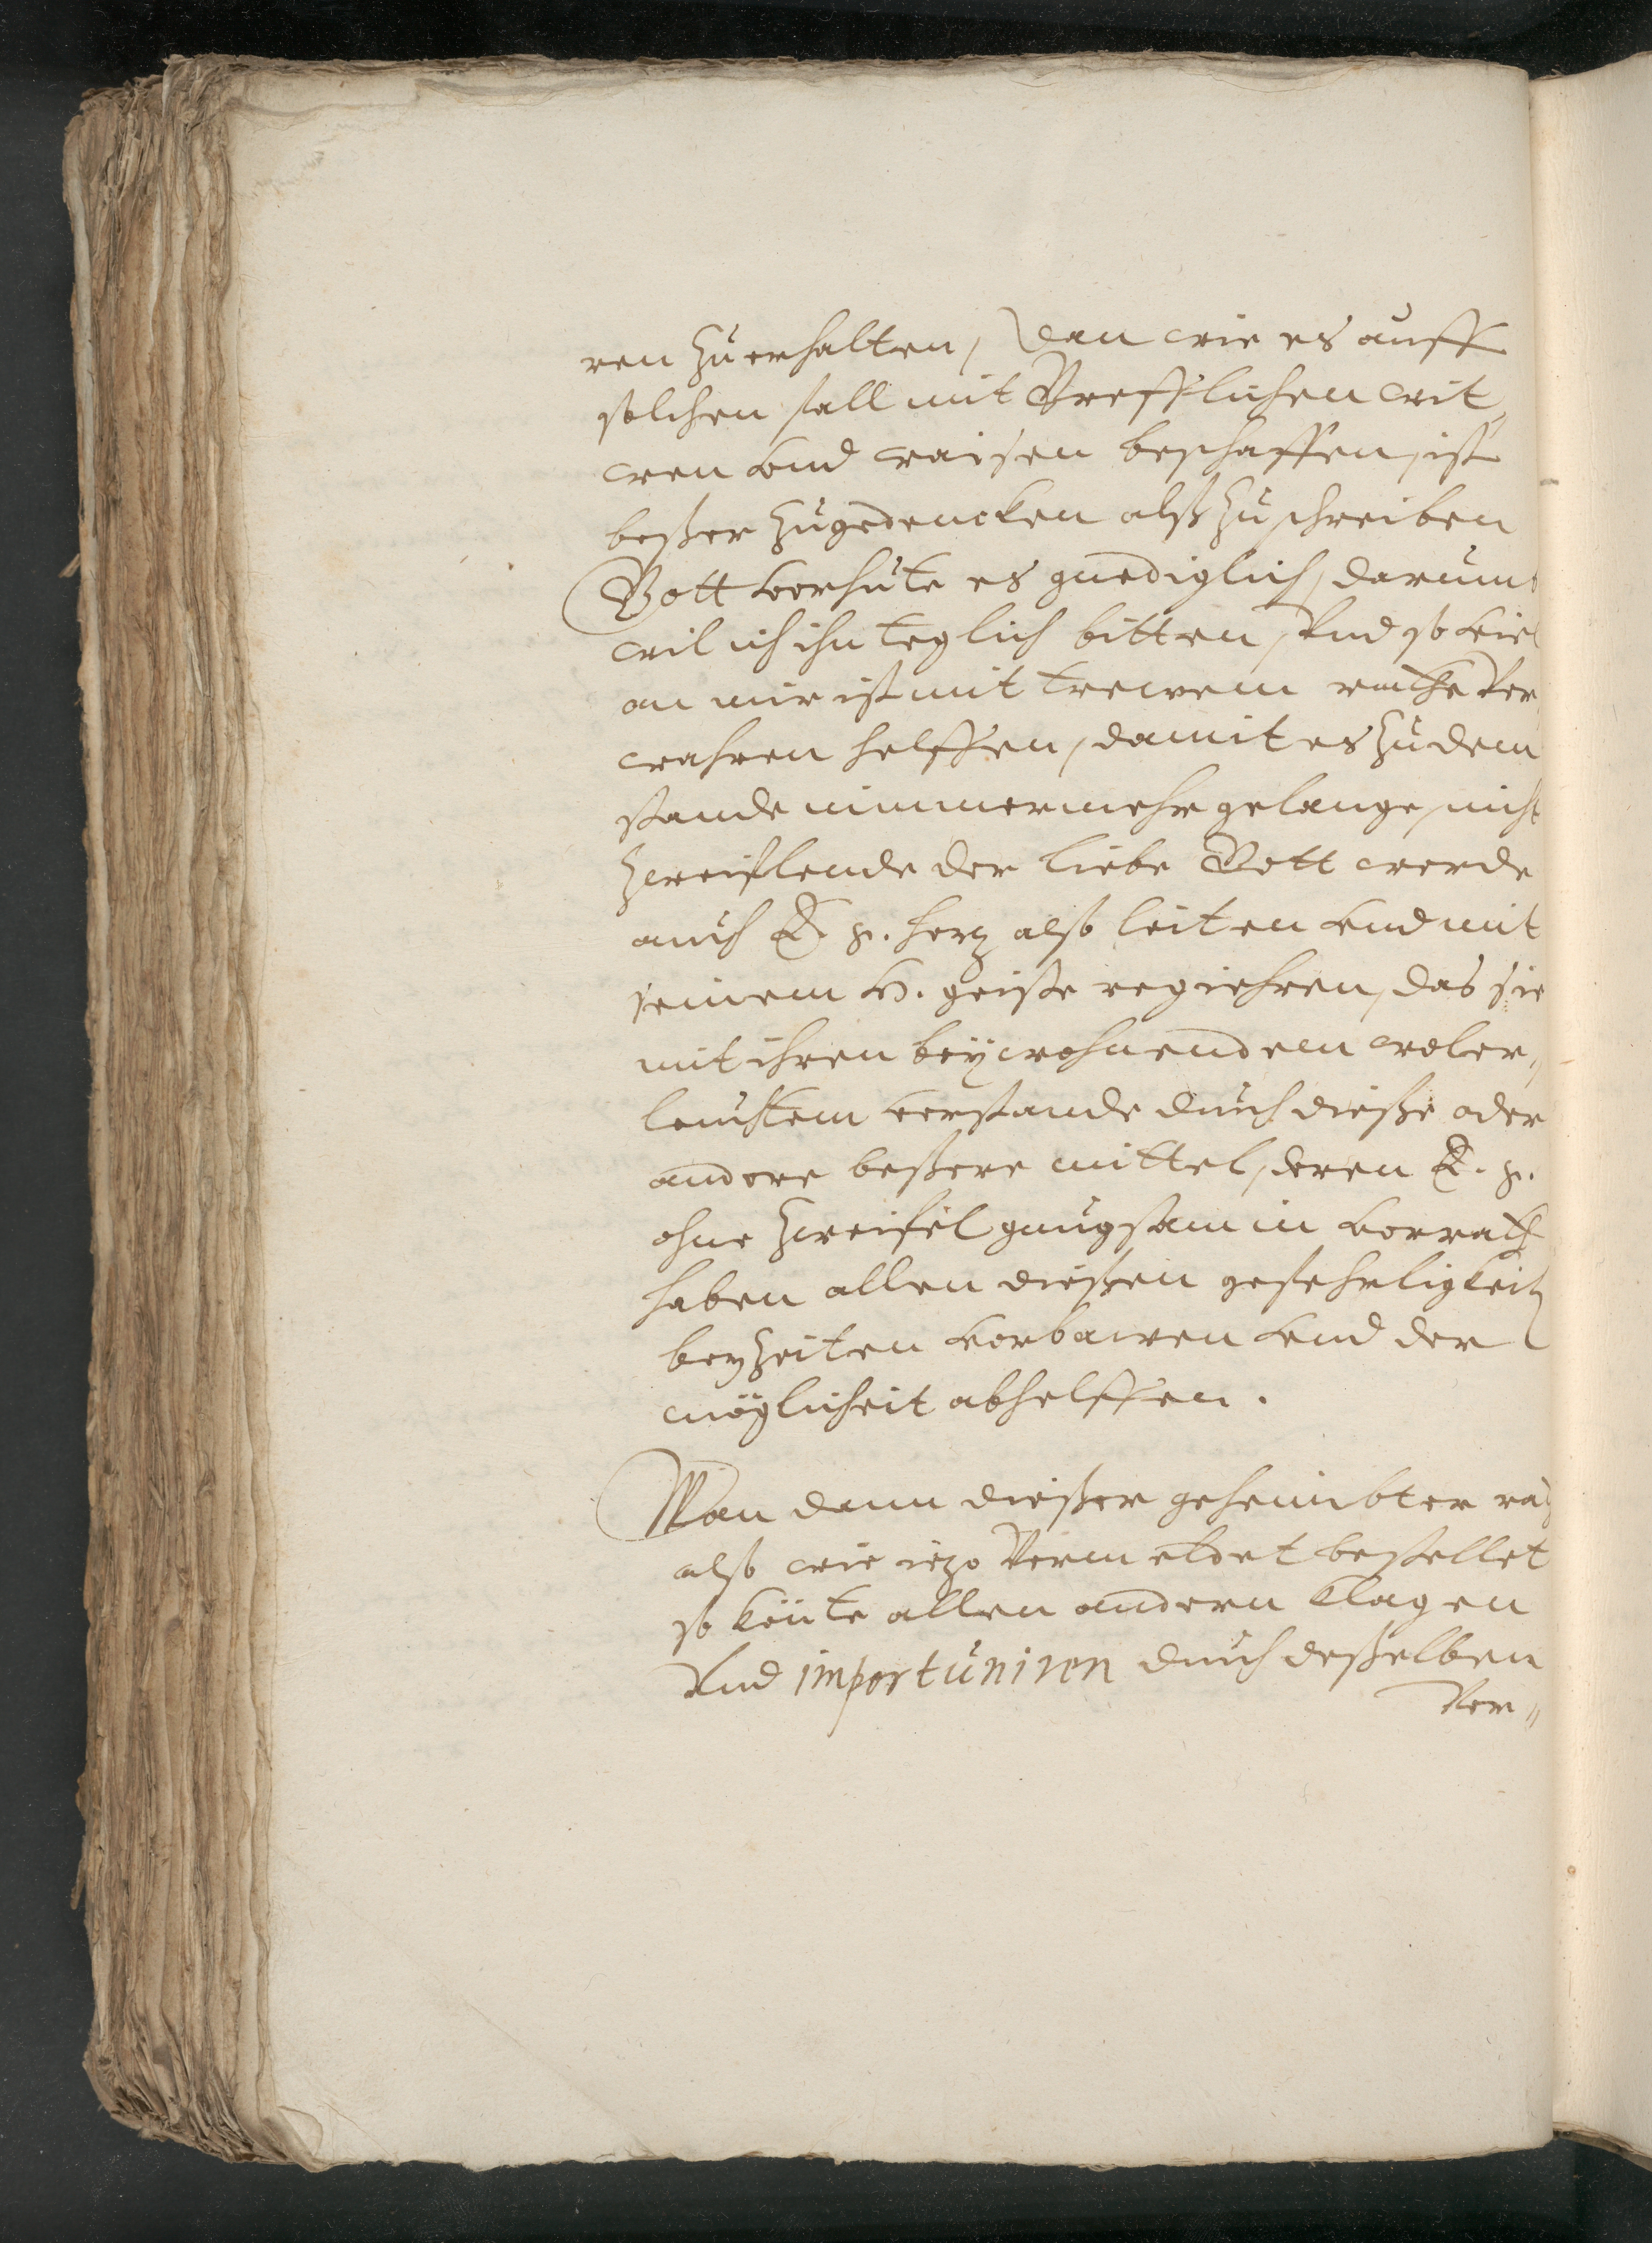 ren zu erhalten, Dan wie es auff
solchen fall mit Greffflichen wit,
wen vnd waisen beschaffen, ist
beßer zugedencken alß zu schreiben
Gott vorhüte es gnediglich, darumb
wil ich ihn teglich bitten, Vnd so viel
an mir ist mit trewem rathe Ver
wahren helffen, damit es zu dem
stande nimmermehr gelange, nicht
zweiflende der liebe Gott werde
auch E. F. hertz also leiten vnd mit
seinem H. geiste regiehren, das sie
mit ihren beÿwohnendem woler,
leuchtem verstande durch dieße oder
andere beßere mittel, deren E. F.
ohne zweifel gnugsam in vorrath
haben allen dießen gefehrligkeit
bey zeiten vorbawen vnd der
mögligheit abhelffen.
Wan dann dießer geheimbter rath
also wie itzo Vermeldet bestellet
so könte allen andern klagen
Vnd importuniren durch deßelben
Ver-